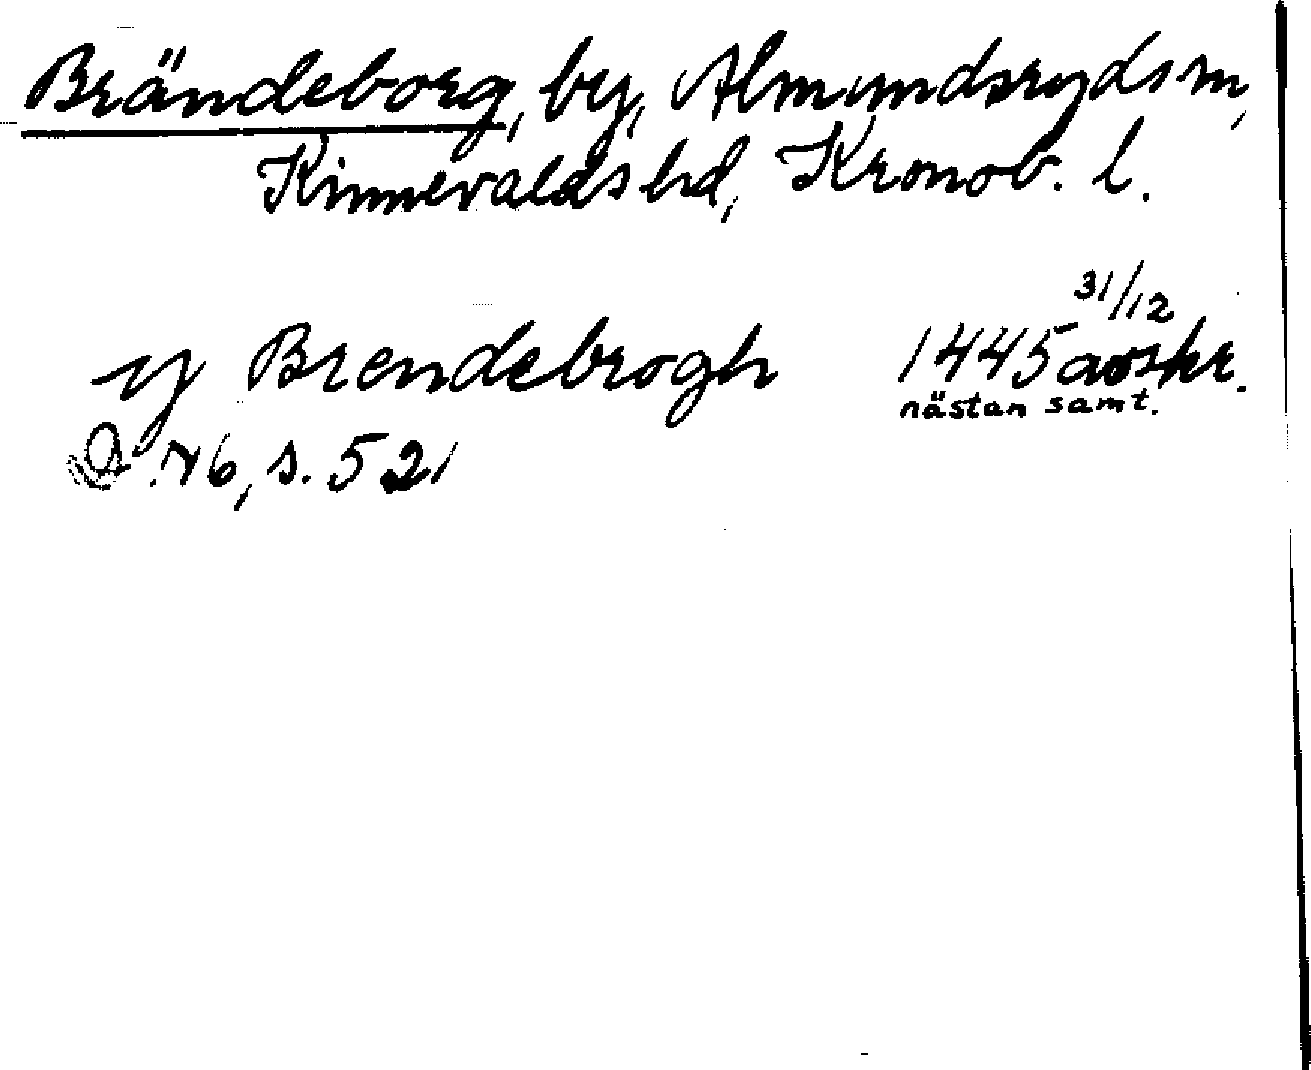 Brändeborg, by, Almundsryds sn,
Kinnevalds hd, Kronob. l.
31/12
y Brendebrogh 1445 avskr.
nästan samt.
N6, s. 521